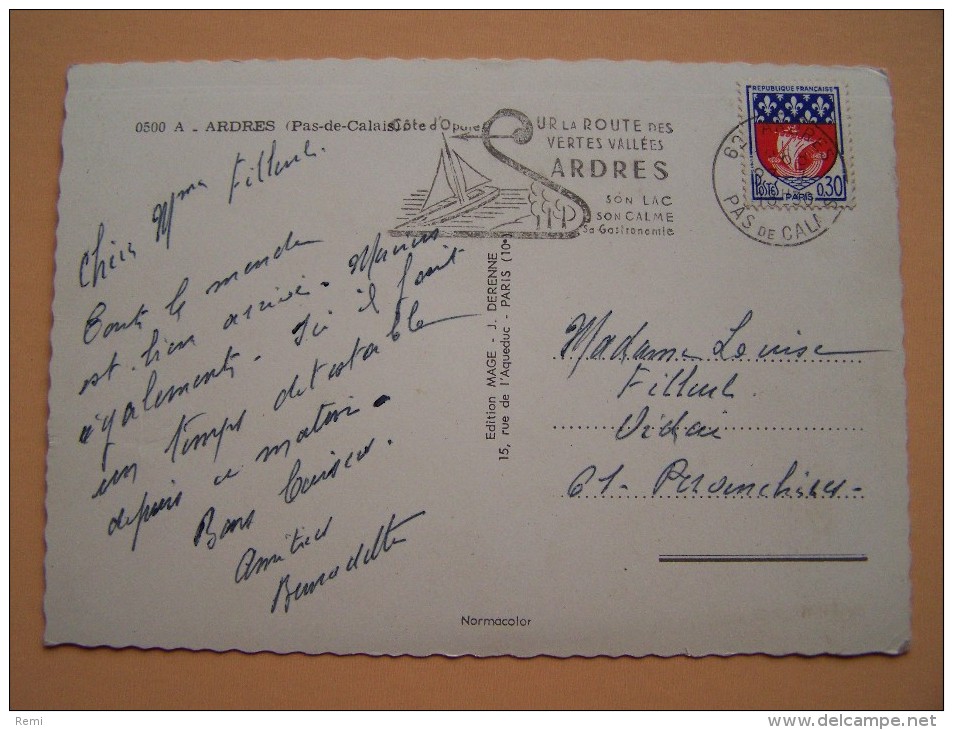 0500 A - ARDRES (Pas-de-Calais)
Côte d'Opale
SUR LA ROUTE DES
VERTES VALLÉES
ARDRES
SON LAC
SON CALME
Sa Gastronomie
REPUBLIQUE FRANÇAISE
POSTES PARIS 0,30
62
PAS DE CALAIS
Mme Filleul.
Tout le monde
est bien arrivé. Marius
également. Ici il fait
un temps détestable
depuis ce matin.
Bons baisers.
Amitiés
Bernadette
Edition MAGE - J. DERENNE
15, rue de l'Aqueduc - PARIS (10e)
Madame Louise
Filleul
Vidai
61.
Normacolor
Remi
http://www.delcampe.net